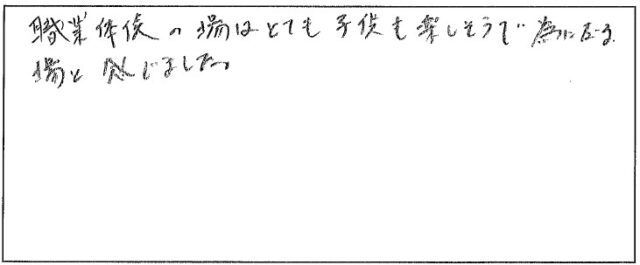 職業体験の場はとても子供も楽しそうで為になる
場と感じました。